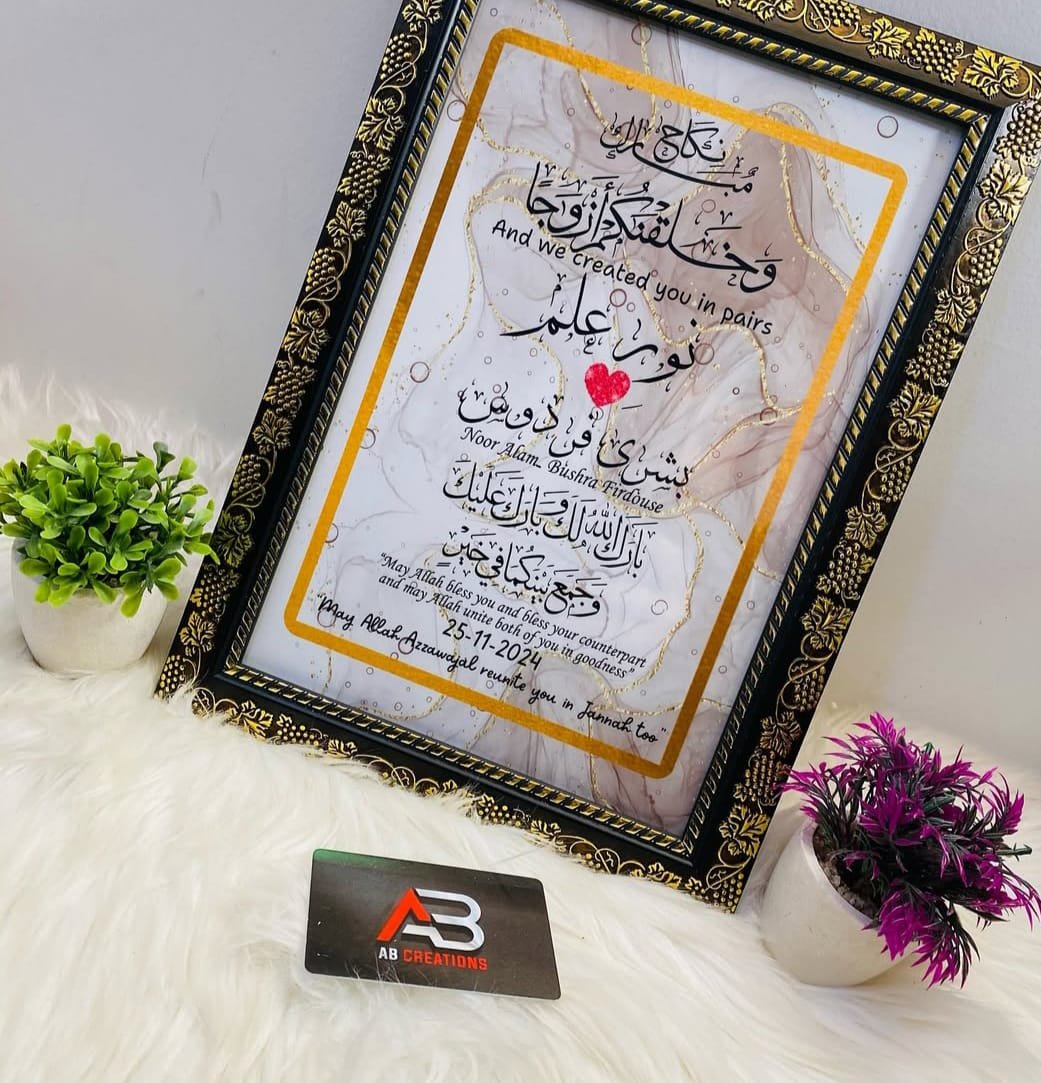 نكاح مبارك
وَخَلَقْنَكُمْ أَزْوَجًا
And we created you in pairs
نور علم
بشرى فردوس
Noor Alam Bushra Firdouse
بَارَكَ اللهُ لَكَ وَبَارَكَ عَلَيْكَ
وَجَمَعَ بَيْنَكُمَا فِي خَيْرٍ
"May Allah bless you and bless your counterpart
and may Allah unite both of you in goodness"
25-11-2024
"May Allah Azzawajal reunite you in Jannah too"
AB
AB CREATIONS